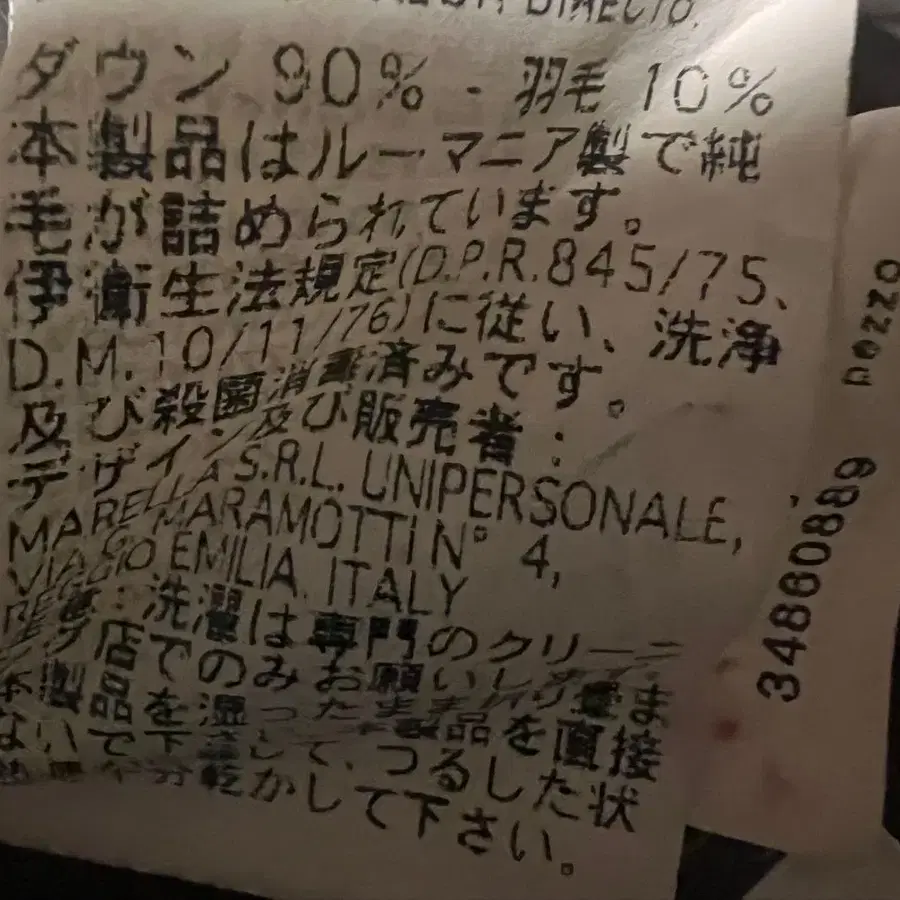 DIRECTO.
ダウン 90% - 羽毛 10%
本製品はルーマニア製で純
毛が詰められています。
伊衛生法規定(D.P.R.845/75、
D.M.10/11/76)に従い、洗浄
及び殺菌消毒済みです。
デザイン及び販売者:
MARELLA S.R.L. UNIPERSONALE,
VIA MARAMOTTI N° 4,
REGGIO EMILIA, ITALY
洗濯は専門のクリーニ
ング店でのみお願いします。
本製品を湿った 製品を直接
ないで下さい、つるした状
乾かして下さい。
3480889